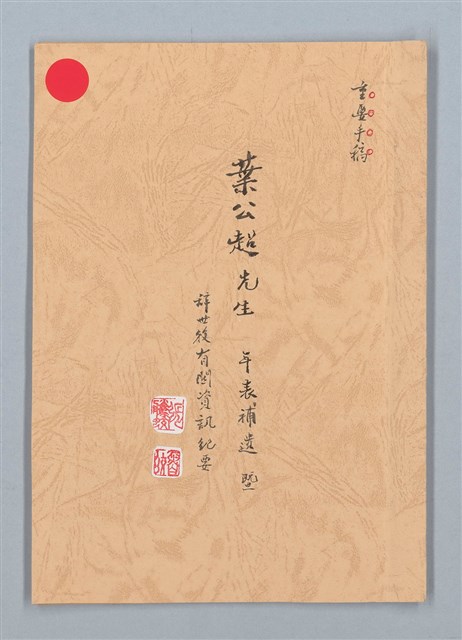 重要手稿
葉公超先生 年表補遺 暨
辞世後有関資訊紀要